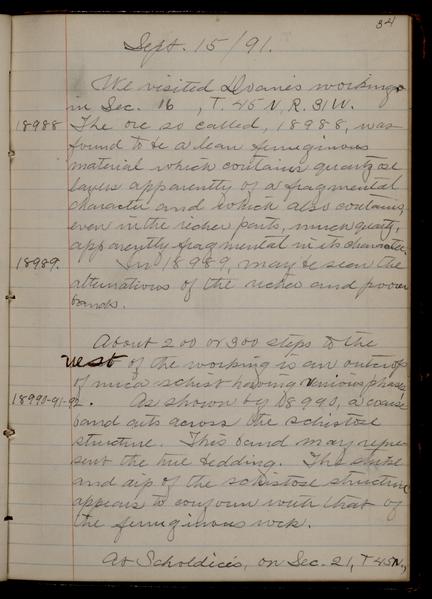 34
Sept. 15/91.
We visited Doane's workings
in Sec. 16, T. 45 N, R. 31 W.
18988 The ore so called, 18988, was
found to be a lean ferruginous
material which contains quartzose
layers apparently of a fragmental
character and which also contains,
even in the richer parts, much quartz,
apparently fragmental in its character.
18989. In 18989, may be seen the
alternations of the richer and poorer
bands.
About 200 or 300 steps to the
west of the working is an outcrop
of mica schist having various phases
18990-91-92. As shown by 18990, a coarse
band cuts across the schistose
structure. This band may repre-
sent the true bedding. The strike
and dip of the schistose structure
appears to conform with that of
the ferruginous rock.
At on Sec. 21, T 45N,